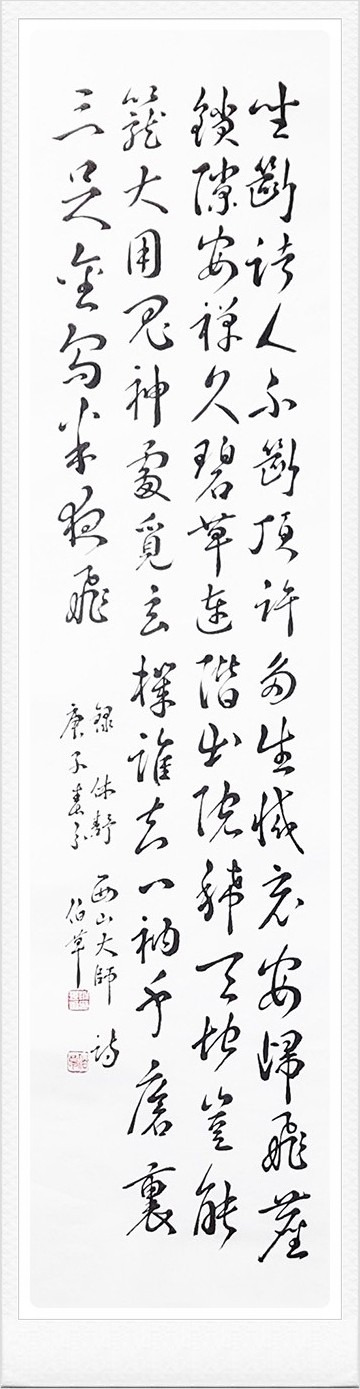 坐斷諸人不斷頂許多生滅竟安歸飛塵
鎖隙安禪久碧草連階出院稀天地豈能
籠大用鬼神處覓玄機誰知一衲千瘡裏
三足金烏半夜飛
錄休靜 西山大師 詩
庚子春 伯草